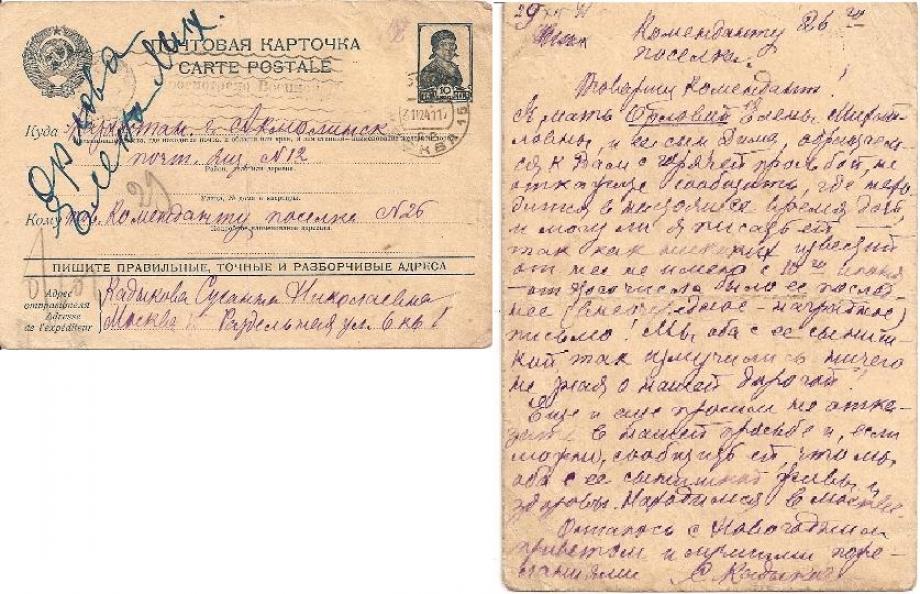 ПОЧТОВАЯ КАРТОЧКА
CARTE POSTALE
10
Орлова
Елена Мих.
Куда
г. Акмолинск
почт. ящ. N 12
Район, село или деревня.
29
Улица, № дома и квартиры.
Кому тов. Коменданту поселка N 26
Подробное наименование адресата.
ПИШИТЕ ПРАВИЛЬНЫЕ, ТОЧНЫЕ И РАЗБОРЧИВЫЕ АДРЕСА
Адрес
отправителя
Adresse
de l'expéditeur
Кадыкова Сусанна Николаевна
Москва Раздельная ул. 6 кв. 1
Коменданту 26 го
поселка.
Товарищ Комендант!
Я мать Орловой Елены Михай-
ловны, и ее сын Дима, обращаем-
ся к Вам с горячей просьбой, не
откажите сообщить, где нахо-
дится в настоящее время дочь
и могу ли я писать ей
так как никаких известий
от нее не имею с 10 го
от этого числа было ее послед-
нее (внеочередное наградное)
письмо! Мы оба с ее сыниш-
кой так измучились ничего
не зная о нашей дорогой!
Еще и еще просим не отка-
зать в нашей просьбе и, если
можно, сообщить ей, что мы
оба с ее сынишкой живы и
здоровы. Находимся в Москве.
Остаюсь с Новогодним
приветом и лучшими поже-
ланиями С. Кадыкова